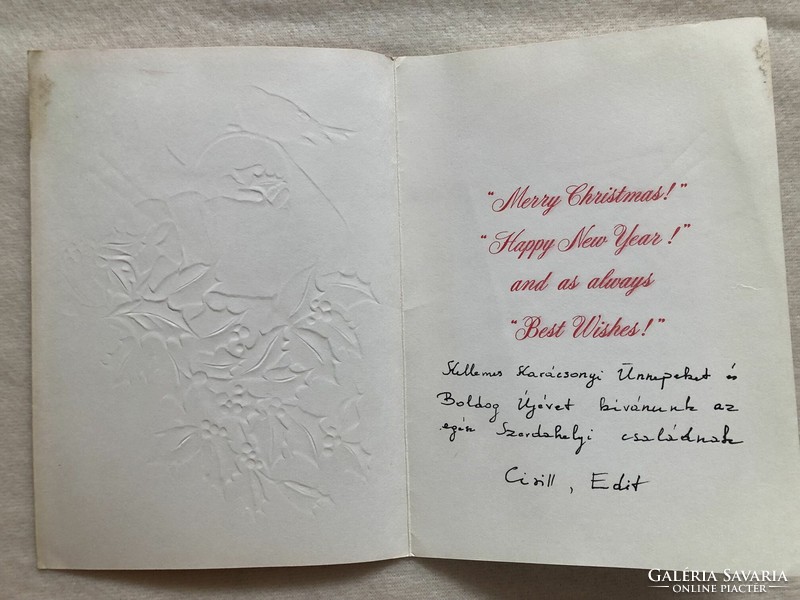 "Merry Christmas!"
"Happy New Year!"
and as always
"Best Wishes!"
Kellemes Karácsonyi Ünnepeket és
Boldog Újévet kívánunk az
egész Szerdahelyi családnak
Cirill, Edit
GALÉRIA SAVARIA
ONLINE PIACTÉR